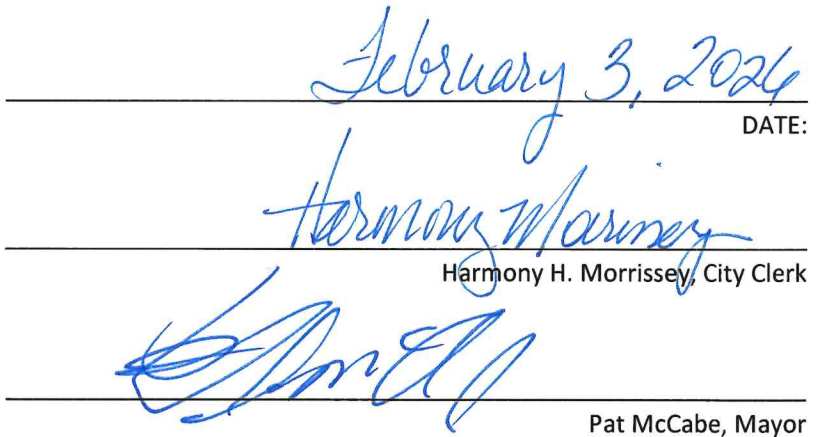 February 3, 2026
DATE:
Harmony Morrissey
Harmony H. Morrissey, City Clerk
Pat McCabe, Mayor